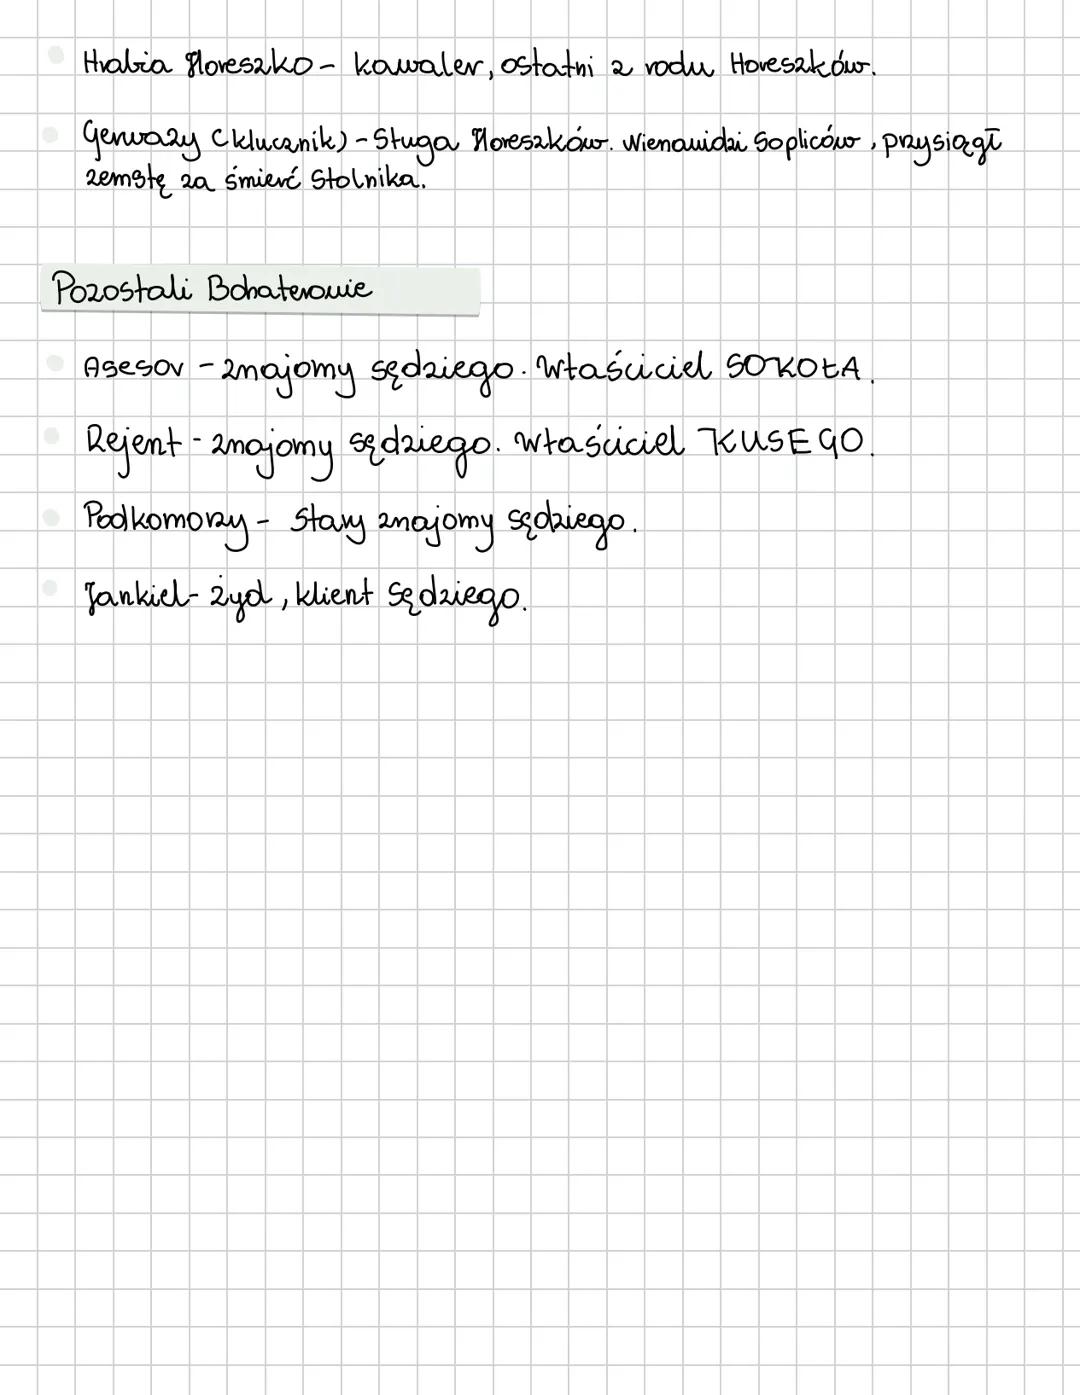 Hrabia Horeszko - kawaler, ostatni z rodu Horeszków.
Gerwazy (klucznik) - Sługa Horeszków. Nienawidzi Sopliców, przysiągł
zemstę za śmierć Stolnika.
Pozostali Bohaterowie
Asesor - znajomy sędziego. Właściciel SOKOŁA.
Rejent - znajomy sędziego. Właściciel KUSEGO.
Podkomorzy - Stary znajomy sędziego.
Jankiel - żyd, klient Sędziego.